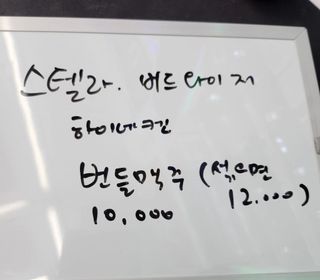 스텔라. 버드와이저
하이네켄
번들맥주 (섞으면
10,000 12.000)